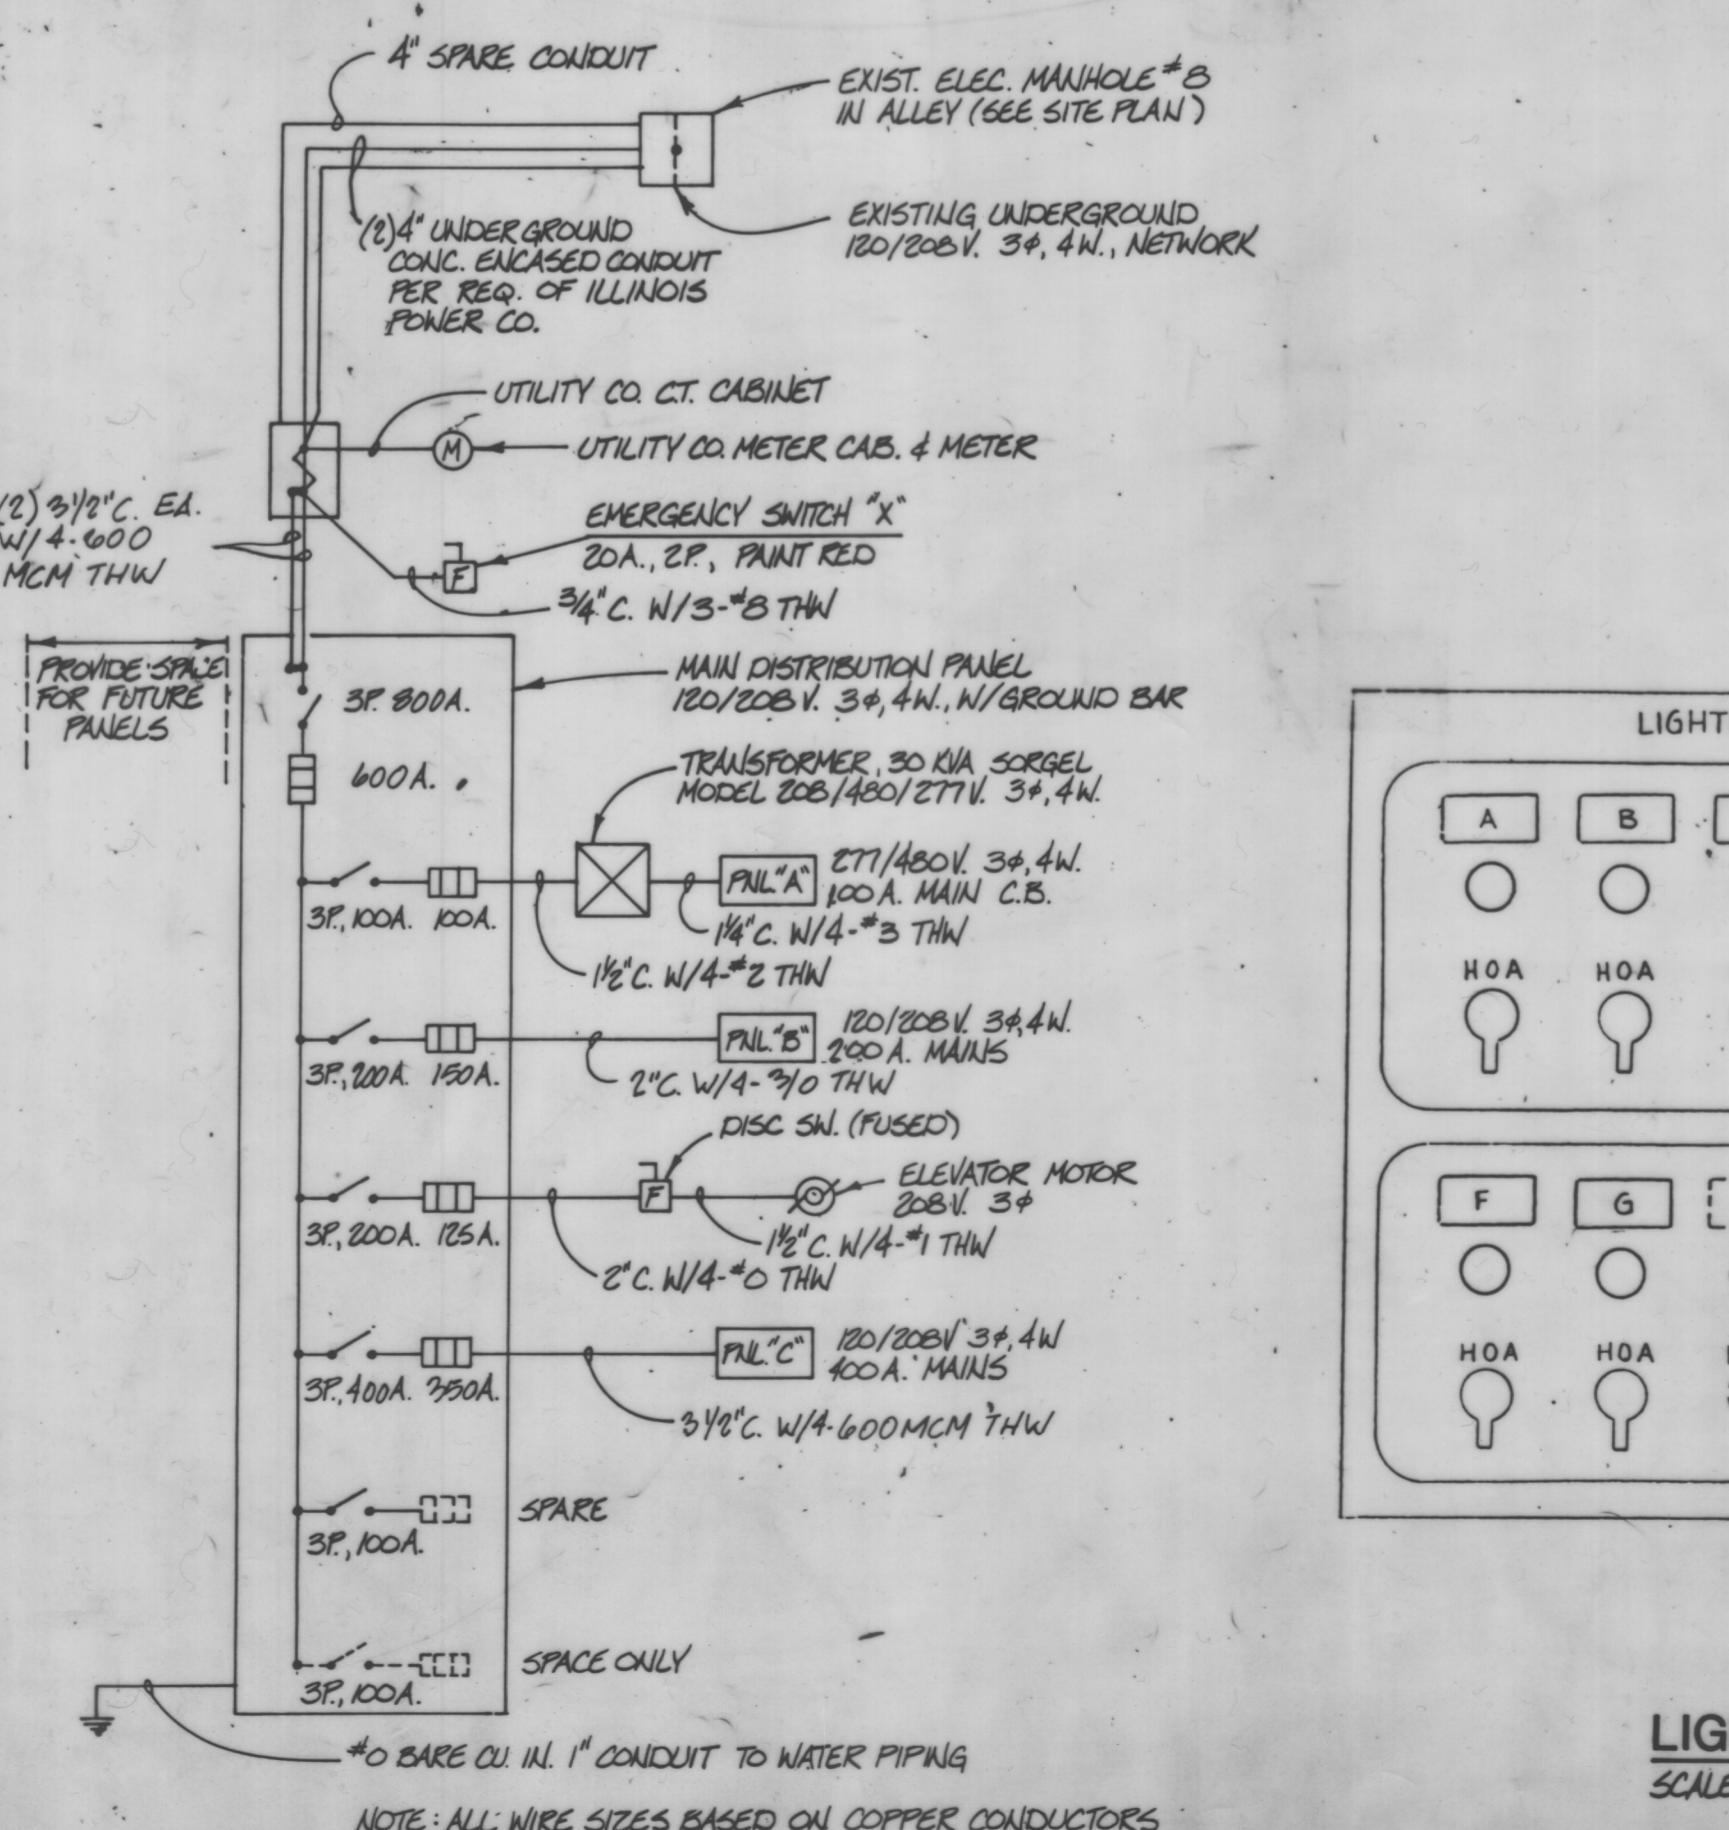 4" SPARE CONDUIT
EXIST. ELEC. MANHOLE #8
IN ALLEY (SEE SITE PLAN)
(2) 4" UNDERGROUND
CONC. ENCASED CONDUIT
PER REQ. OF ILLINOIS
POWER CO.
EXISTING UNDERGROUND
120/208V. 3φ, 4W., NETWORK
UTILITY CO. C.T. CABINET
M
UTILITY CO. METER CAB. & METER
(2) 3 1/2" C. EA.
W/4-600
MCM THW
EMERGENCY SWITCH "X"
20A., 2P., PAINT RED
F
3/4" C. W/3-#8 THW
PROVIDE SPACE
FOR FUTURE
PANELS
MAIN DISTRIBUTION PANEL
120/208V. 3φ, 4W., W/GROUND BAR
3P. 800A.
600A.
TRANSFORMER, 30 KVA SORGEL
MODEL 208/480/277V. 3φ, 4W.
3P., 100A. 100A.
PNL. "A"
277/480V. 3φ, 4W.
100A. MAIN C.B.
1 1/4" C. W/4-#3 THW
1 1/2" C. W/4-#2 THW
3P., 200A. 150A.
PNL. "B"
120/208V. 3φ, 4W.
200A. MAINS
2" C. W/4-3/0 THW
DISC SW. (FUSED)
3P., 200A. 125A.
F
ELEVATOR MOTOR
208V. 3φ
1 1/2" C. W/4-#1 THW
2" C. W/4-#0 THW
3P., 400A. 350A.
PNL. "C"
120/208V 3φ, 4W
400A. MAINS
3 1/2" C. W/4-600MCM THW
3P., 100A.
SPARE
3P., 100A.
SPACE ONLY
#0 BARE CU. IN. 1" CONDUIT TO WATER PIPING
NOTE: ALL WIRE SIZES BASED ON COPPER CONDUCTORS
LIGHT
A B
HOA HOA
F G
HOA HOA
LIG
SCALE